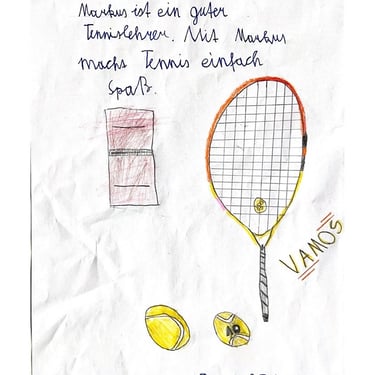 Markus ist ein guter
Tennislehrer. Mit Markus
machs Tennis einfach
Spaß.
VAMOS